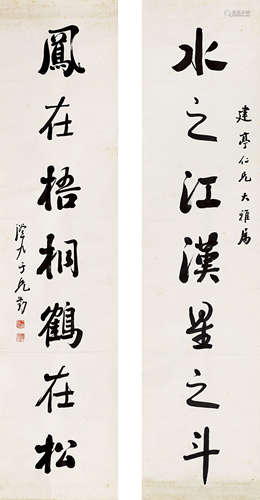 建亭仁兄大雅属
水之江漢星之斗
鳳在梧桐鶴在松
于危劉